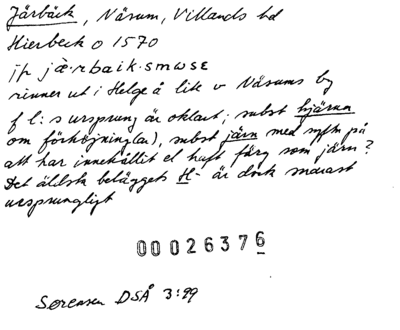 Järbäck, Näsum, Villands hd
Hierbeck o 1570
jfr jæ̀·rbaik·smwsɛ
rinner ut i Helge å lite v Näsums by
f l:s ursprung är oklart; subst hjärna
om förhöjning(ar), subst järn med syftn på
att har innehållit el haft färg som järn?
Det äldsta beläggets H- är dock snarast
ursprungligt
00026376
Sørensen DSÅ 3:99